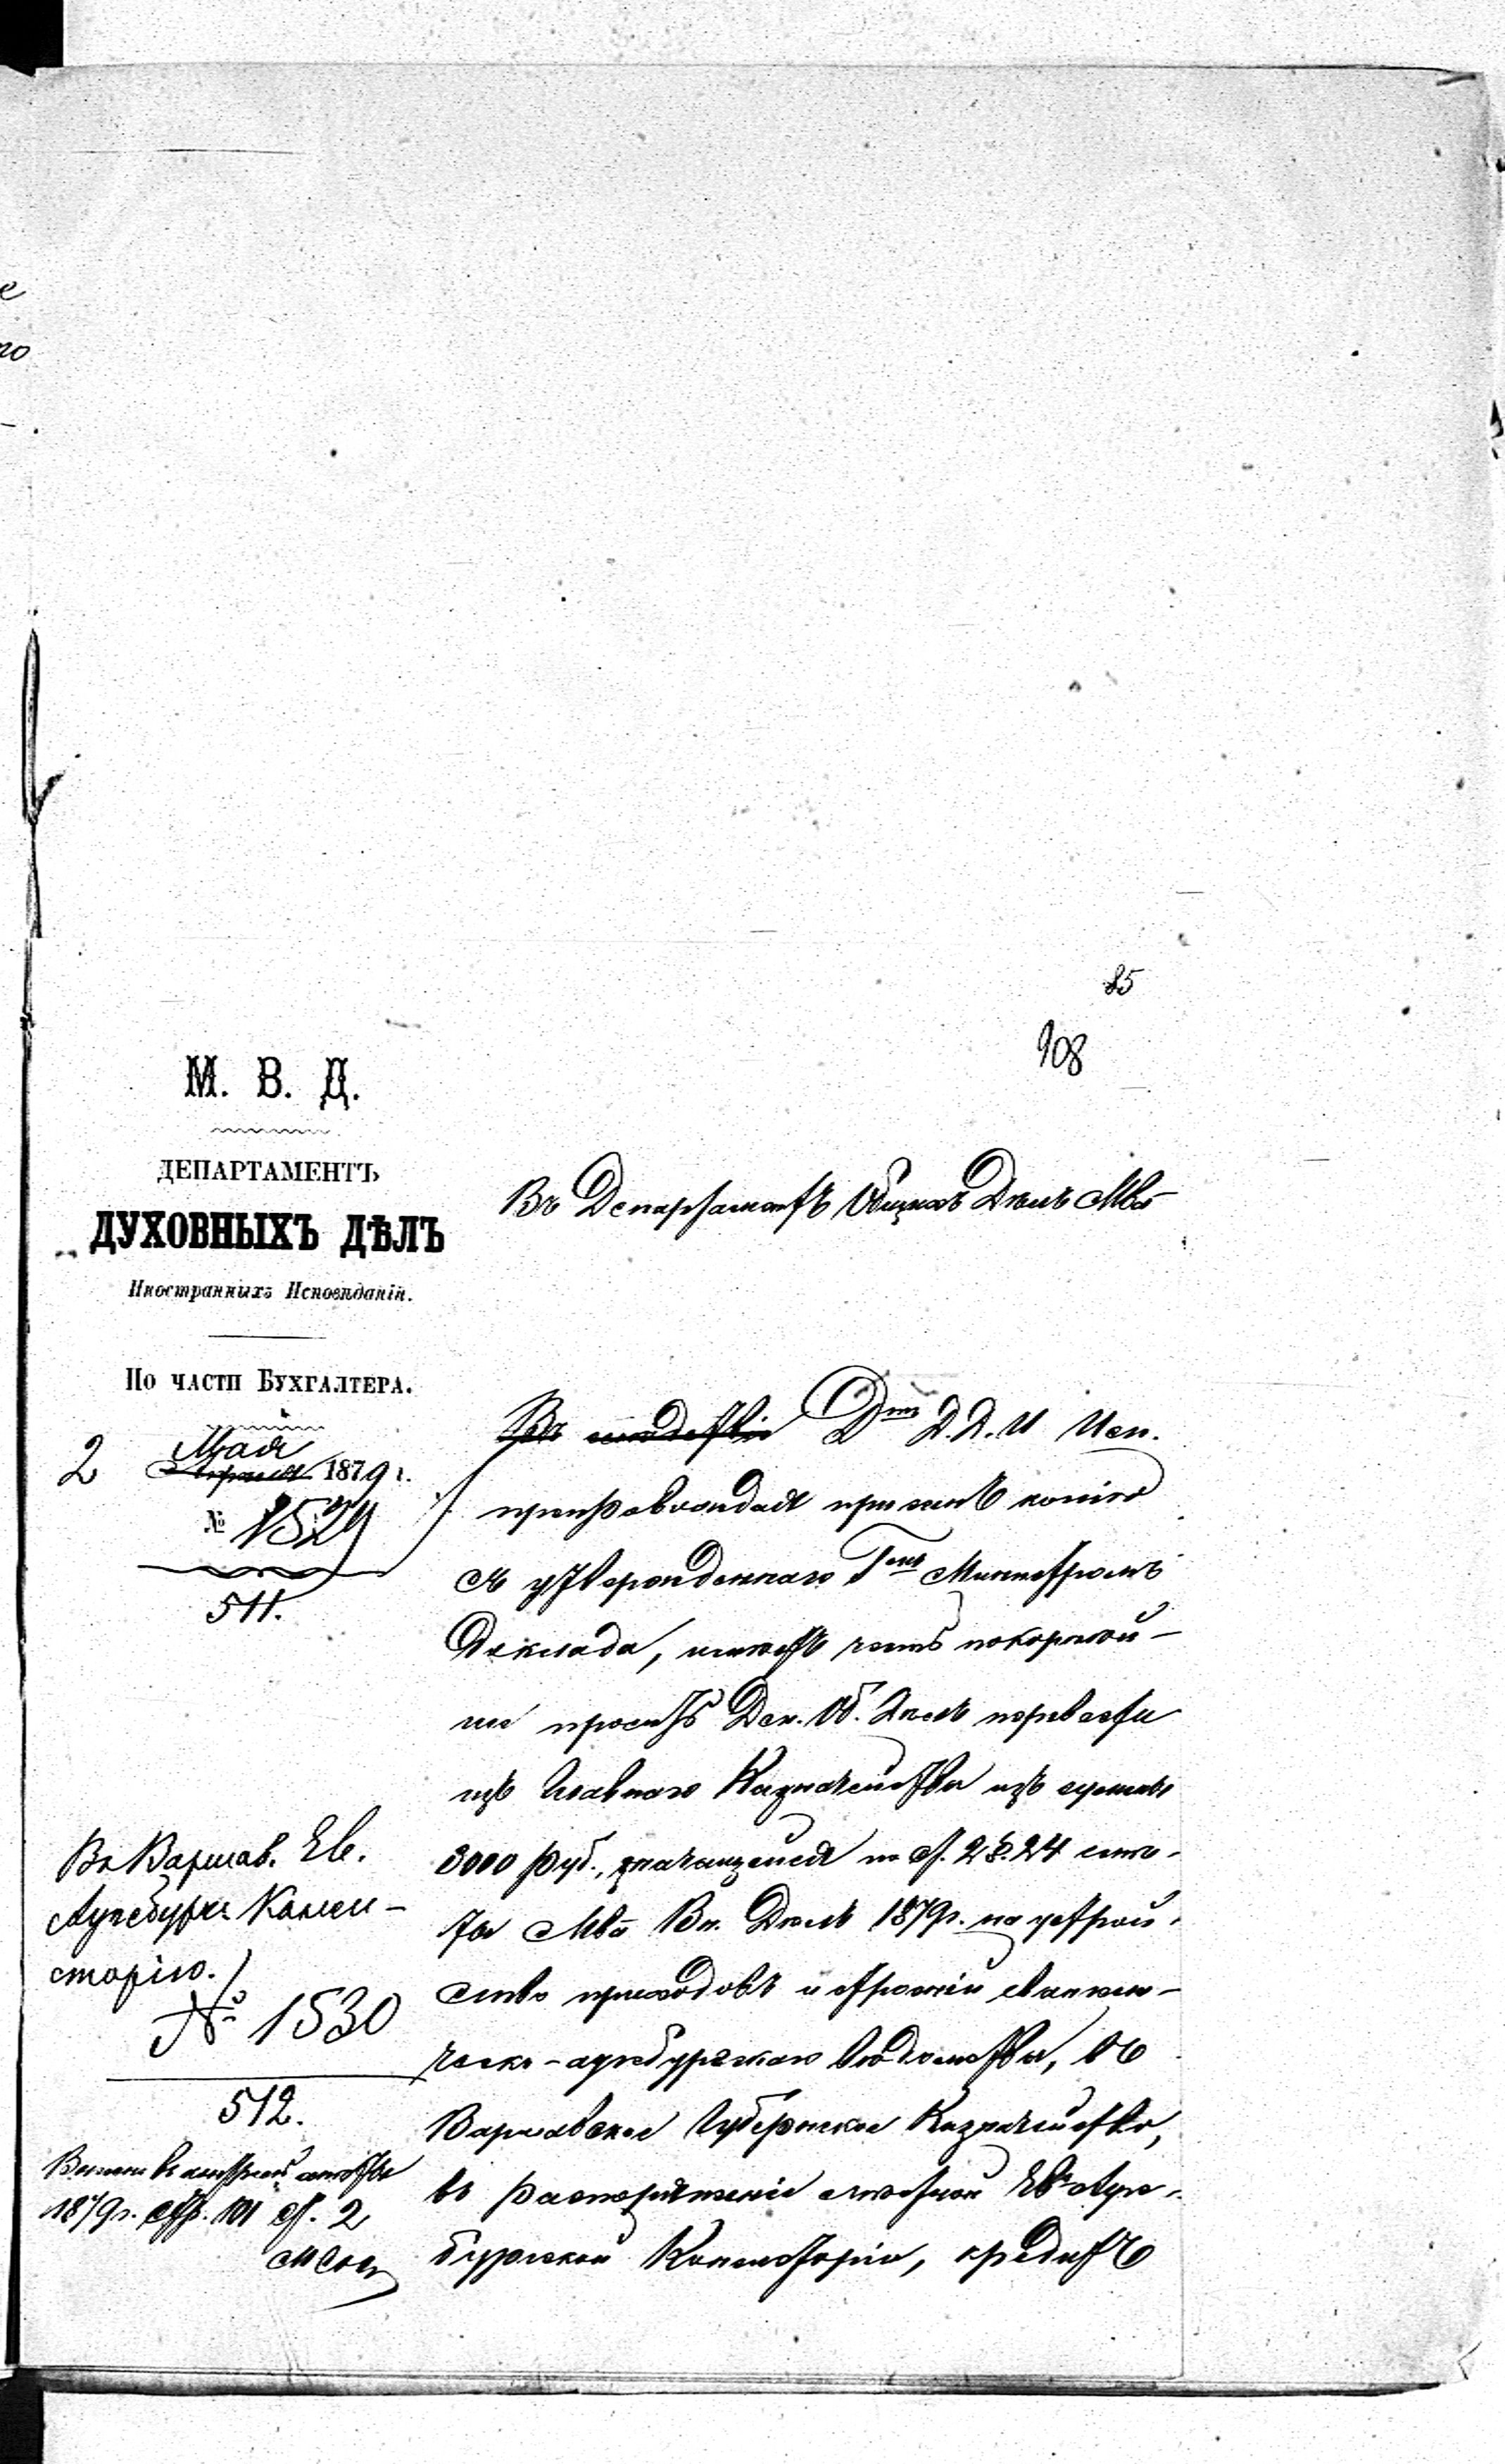 85
108
М. В. Д.
ДЕПАРТАМЕНТЪ
ДУХОВНЫХЪ ДѢЛЪ
Иностранныхъ Исповѣданій.
По части Бухгалтера.
2 Мая
Апрѣля 1879 г.
№ 1529
511.
Въ Департаментъ Общихъ Дѣлъ Мва
Въ Дтъ Д. Д. И. Исп.
препровождая при семъ копію
съ утвержденнаго Гмъ Министромъ
доклада, имѣетъ честь покорнѣй-
ше просить Деп. Об. Дѣлъ перевести
изъ Главнаго Казначейства изъ суммы
3000 руб., значащейся по ст. 2 § 24 смѣ-
ты Мва Вн. Дѣлъ 1879 г. на устрой-
ство приходовъ и строеній евангели-
ческо-аугсбургскаго вѣдомства, въ
Варшавское Губернское Казначейство,
въ распоряженіе мѣстной Ев. Аугс-
бургской Консисторіи, кредитъ
Въ Варшав. Ев.
Аугсбургс. Конси-
сторію.
№ 1530
512.
1879 г. стр. 101 ст. 2